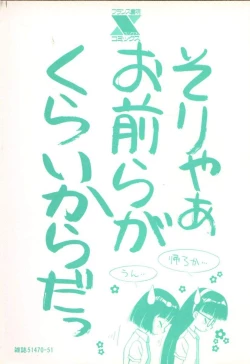 フランス書院
X
コミックス
そりゃあ
お前らが
くらいからだっ
帰るか…
うん…
雑誌51476-51